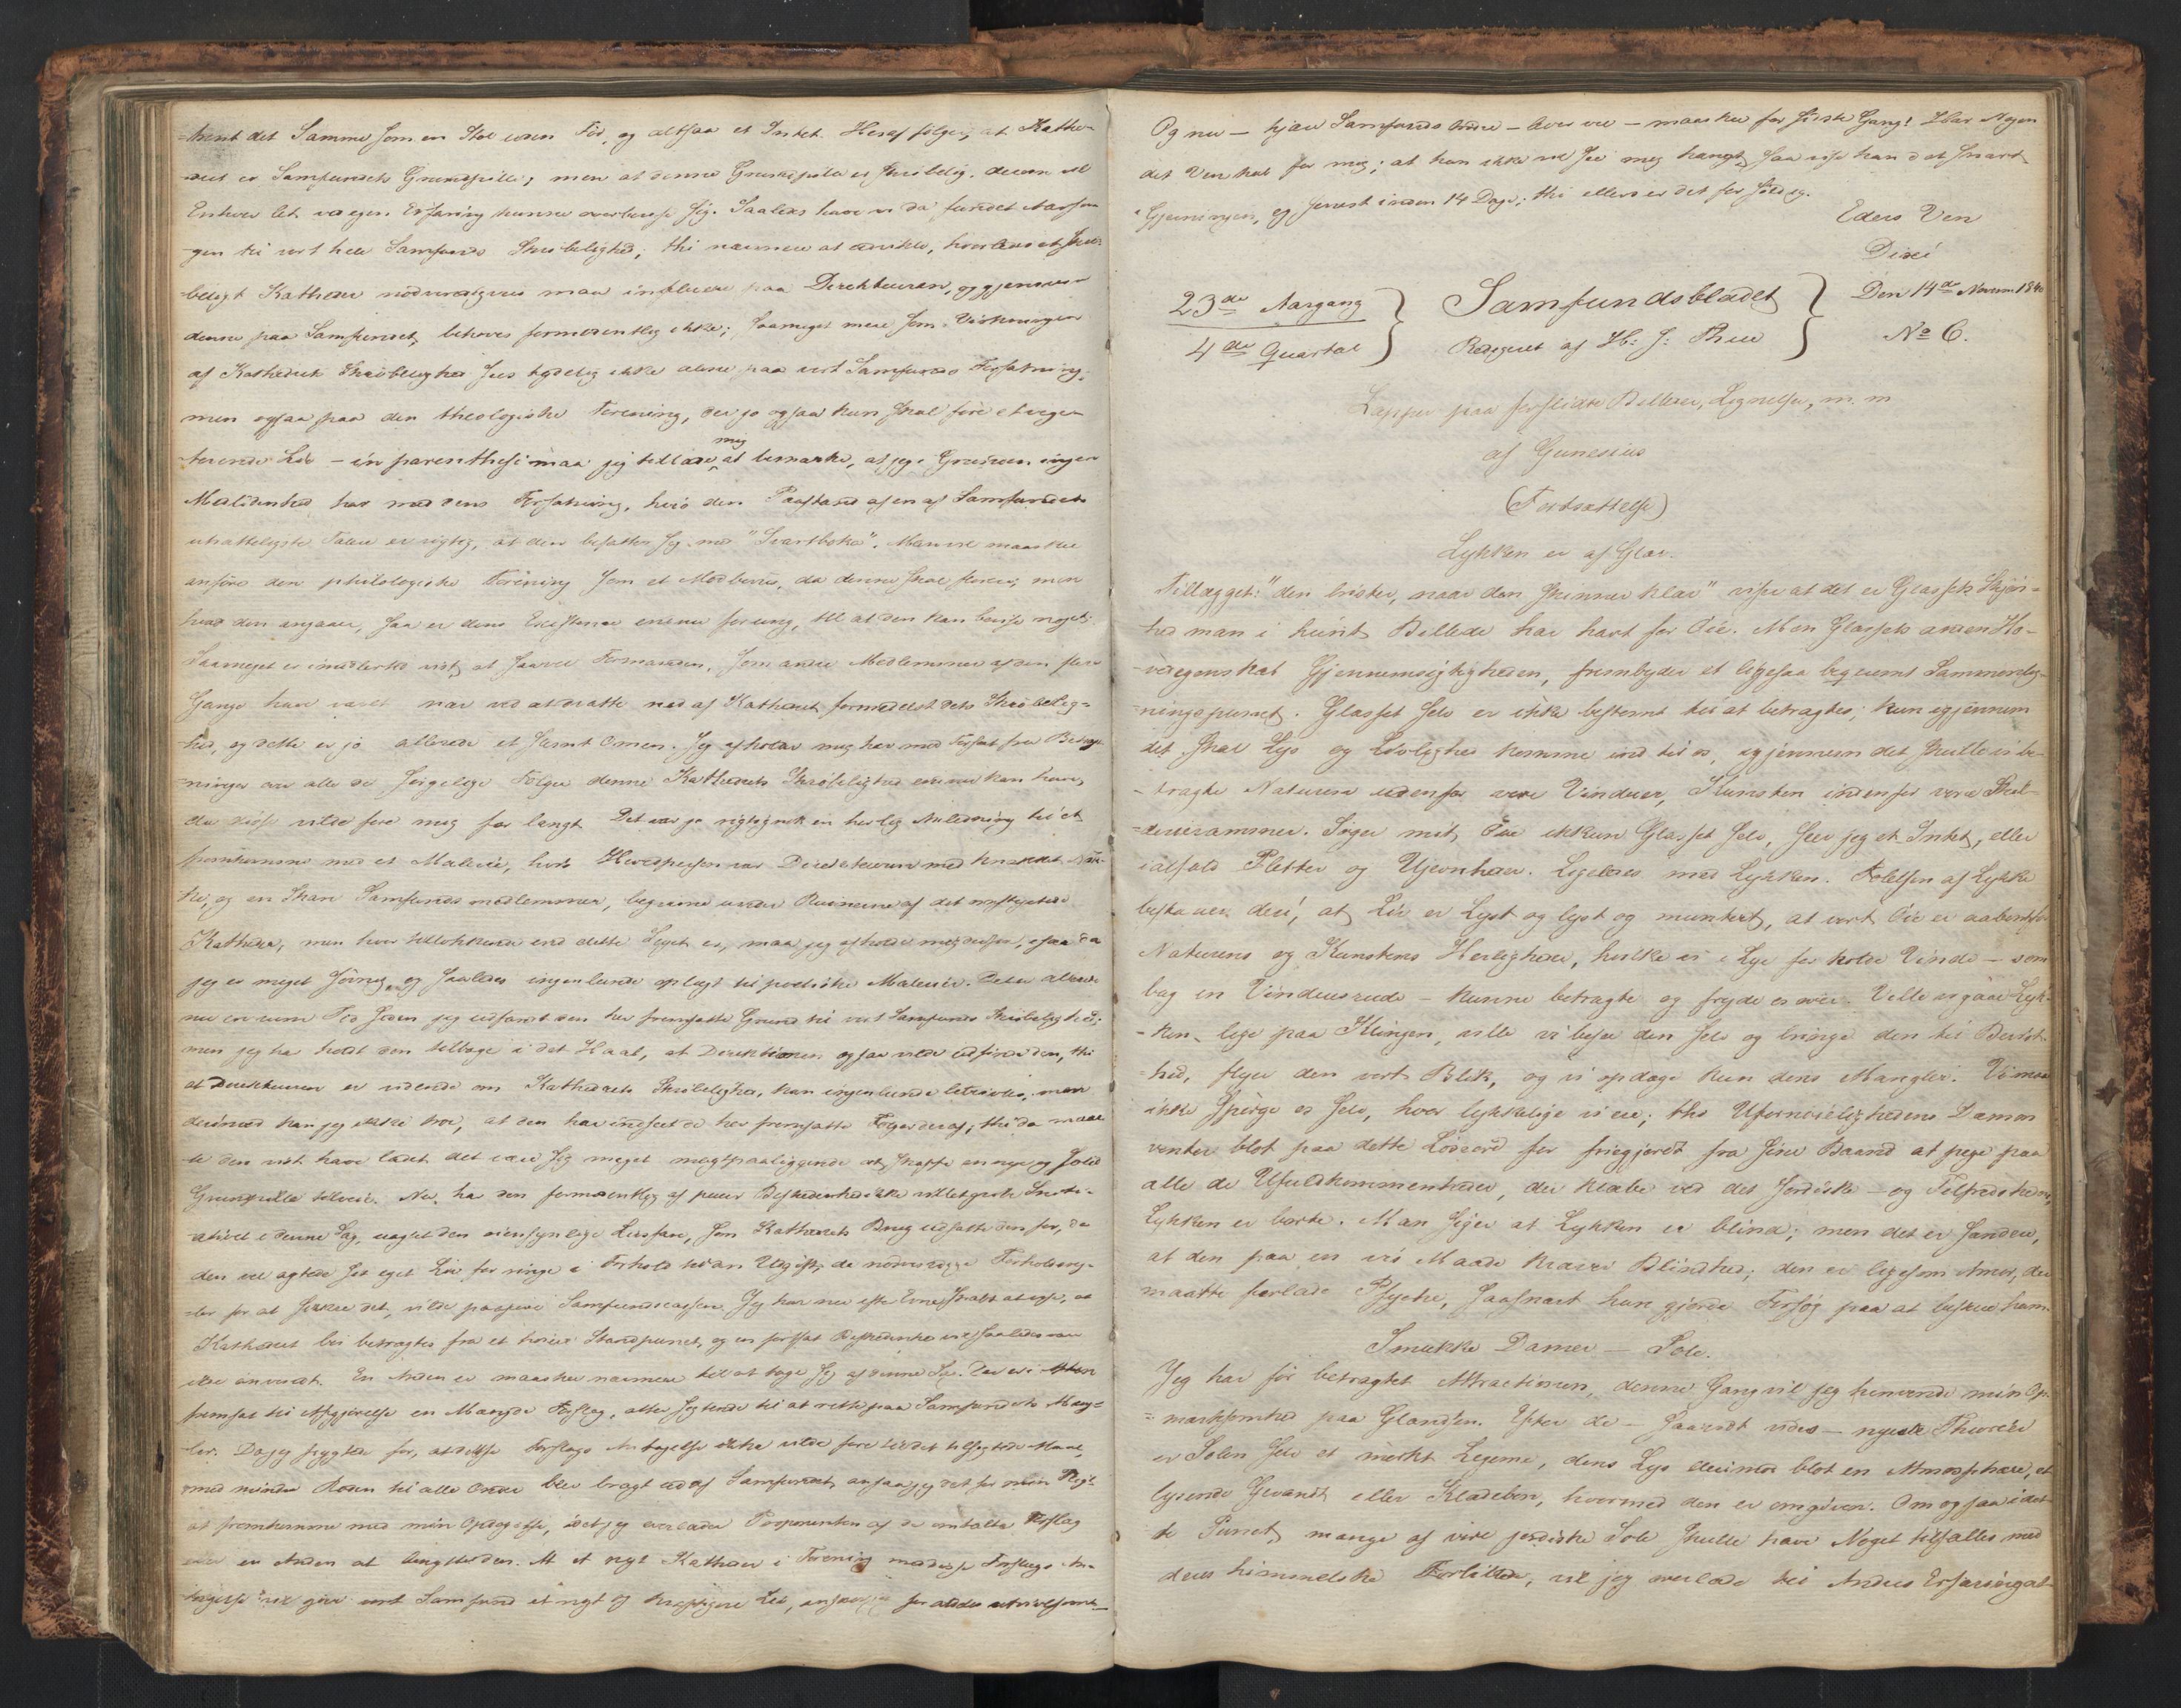 -trent det Samme som en Stol uden Fod, og altsaa et Intet. Heraf følger, at Kathe-
-dret er Samfundets Grundpille; men at denne Grundpille er skrøbelig, derom vil
Enhver let ved egen Erfaring kunne overbevise sig. Saaledes have vi da fundet Aarsa-
gen til vort hele Samfunds Skrøbelighed; thi nærmere at udvikle, hvorledes et skrø-
beligt Katheder nødvendigviis maa influere paa Direkteuren, og gjennem
denne paa Samfundet, behøves formeentlig ikke; saameget mere som Virkningen
af Kathedrets Skrøbelighed sees tydelig ikke alene paa vort Samfunds Forfatning,
men ogsaa paa den theologiske Forening, der jo ogsaa kun skal føre et vege-
terende Liv – in parenthesi maa jeg tillade mig at bemærke, at jeg i Grunden ingen
Medlidenhed har med dens Forfatning, hvis den Paastand af en af Samfundets
utrætteligste Talere er rigtig, at den befatter sig med "Svartboka". Man vil maaskee
anføre den philologiske Forening som et Modbeviis, da denne skal florere; men
hvad den angaaer, saa er dens Existense endnu for ung, til at den kan bevise noget.
Saameget er imidlertid vist, at saavel Formanden, som andre Medlemmer af den flere
Gange have været nær ved at dratte ned af Kathedret formedelst dets Skrøbelig-
hed, og dette er jo allerede et slemt Omen. Jeg afholder mig her med Forsæt fra Betragt-
ninger over alle de sørgelige Følger denne Kathedrets Skrøbelighed endnu kan have,
da disse vilde føre mig for langt. Det var jo rigtignok en herlig Anledning til at
fremkomme med et Malerie, hvis Hovedperson var Direkteuren med knækket Nak-
ke, og en Skare Samfundsmedlemmer, begravne under Ruinerne af det nedstyrtede
Katheder, men hvor tillokkende end dette Sujet er, maa jeg afholde mig derfra, da
jeg er meget søvnig, og saaledes ingenlunde oplagt til poetiske Malerier. Det er allerede
nu en rum Tid siden jeg udfandt den her fremsatte Grund til vort Samfunds Skrøbelighed;
men jeg har holdt den tilbage i det Haab, at Direktionen ogsaa vilde udfinde den, thi
at Direkteuren er vidende om Kathedrets Skrøbelighed, kan ingenlunde betvivles, men
derimod kan jeg ikke troe, at den har indseet de her fremsatte Følger deraf; thi da maat-
te den vist have ladet det være sig meget magtpaaliggende at skaffe en nye og solid
Grundpille tilveie. Nu har den formeentlig af puur Beskedenhed ikke villet gribe Initi-
ativet i denne Sag, uagtet den øiensynlige Livsfare, som Kathedrets Brug udsatte den for, da
den vel agtede sit eget Liv for ringe i Forhold til den Udgift, de nødvendige Forholdsreg-
ler for at sikkre det, vilde paaføre Samfundscassen. Jeg har nu efter Evne stræbt at vise, at
Kathedret bør betragtes fra et høiere Standpunct, og en forfat Beskedenhed vil saaledes være
ilde anvendt. En Anden er maaskee nærmere til at tage sig af denne Sag. Der er i Aften
fremsat til Afgjørelse en Mængde Forslag, alle sigtende til at rette paa Samfundets Mang-
ler. Da jeg frygtede for, at disse Forslags Antagelse ikke vilde føre til det tilsigtede Maal,
med mindre Roden til alle Onder blev bragt ud af Samfundet, ansaa jeg det for min Pligt
at fremkomme med min Opdagelse, idet jeg overlader Proponenten af de omtalte Forslag
eller en Anden at benytte den. At et nyt Katheder i Forening med disse Forslags An-
tagelse vil give vort Samfund et nyt og kraftigere Liv, anseer jeg for aldeles utvivlsomt
Og nu – kjære Samfunds Brødre – lever vel – maaskee for sidste Gang! Har Nogen
det Venskab for mig; at han ikke vil see mig hængt, saa vise han det snart
i Gjerningen, og senest inden 14 Dage; thi ellers er det for sildig.
Eders Ven
Dixi
23de Aargang
4de Quartal
Samfundsbladet
Redigeret af H: J: Thue
Den 14de Novem 1840
No 6.
Lapper paa forslidte Billeder, Lignelser, m. m
af Gunesius
(Fortsættelse)
Lykken er af Glar.
Tillægget: "den brister, naar den skinner klar" viser at det er Glassets Skjør-
hed man i hiint Billede har havt for Øie. Men Glassets anden Ho-
vedegenskab Gjennemsigtigheden, frembyder et ligesaa beqvemt Sammenlig-
ningspunct. Glasset selv er ikke bestemt til at betragtes; kun igjennem
det skal Lys og Livlighed komme ind til os, igjennem det skulle vi be-
-tragte Naturen udenfor vore Vinduer, Kunsten indenfor vore Skil-
-derierammer. Søger mit Øie ikkun Glasset selv, seer jeg et Intet, eller
ialfald Pletter og Ujevnheder. Ligeledes med Lykken. Følelsen af Lykke
bestaaer deri, at Liv er Lyst og lyst og muntert, at vort Øie er aabent for
Naturens og Kunstens Herligheder, hvilke vi i Lye for kolde Vinde – som
bag en Vinduesrude – kunne betragte og fryde os over. Ville vi gaae Lyk-
-ken lige paa Klingen, ville vi besee den selv og bringe den til Bevidst-
hed, flyer den vort Blik, og vi opdage kun dens Mangler. Vi maa
ikke spørge os selv, hvor lykkelige vi ere; thi Ufornøielighedens Dæmon
venter blot paa dette Løsord for friegjordt fra sine Baand at pege paa
alle de Ufuldkommenheder, der klæbe ved det Jordiske – og Tilfredsheden,
Lykken er borte. Man siger at Lykken er blind; men det er sandere,
at den paa en vis Maade kræver Blindhed; den er ligesom Amor, der
maatte forlade Psyche, saasnart hun gjorde Forsøg paa at beskue ham.
Smukke Damer – Sole.
Jeg har før betragtet Attractionen, denne Gang vil jeg henvende min Op-
mærksomhed paa Glandsen. Efter de – saavidt vides – nyeste Theorier
er Solen selv et mørkt Legeme, dens Lys derimod blot en Atmosphære, et
lysende Gevandt eller Klædebon, hvormed den er omgiven. Om ogsaa i det-
te Punct mange af vore jordiske Sole skulle have Noget tilfælles med
deres himmelske Forbillede, vil jeg overlade til Andres Erfaring at